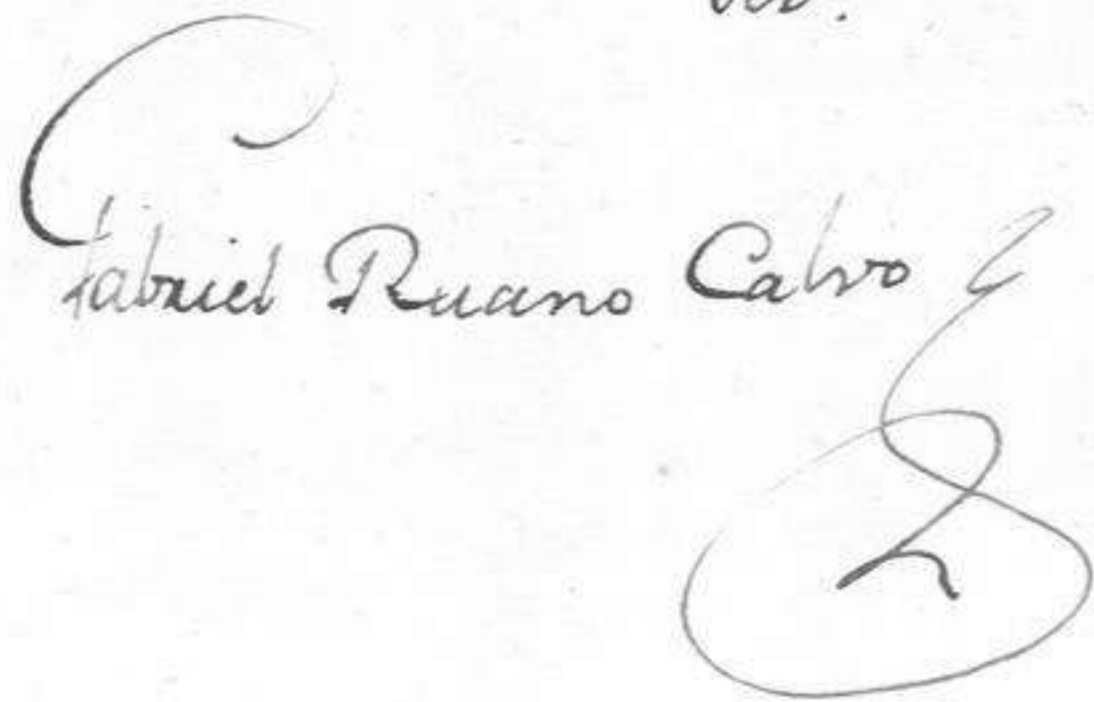 Gabriel Ruano Calvo